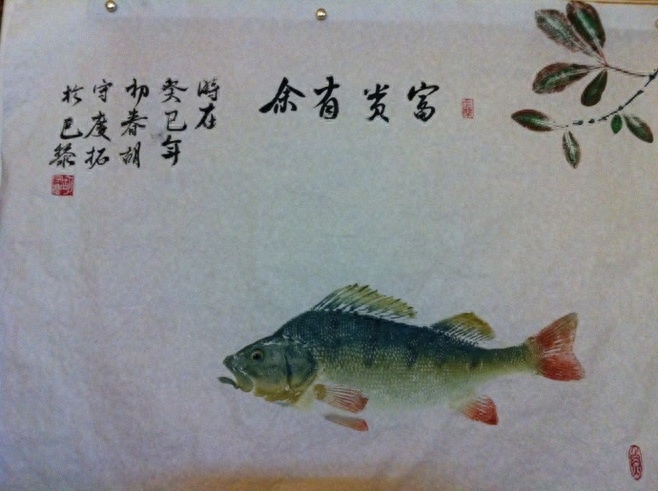 富贵有余
時在
癸巳年
初春胡
守慶拓
於巴黎